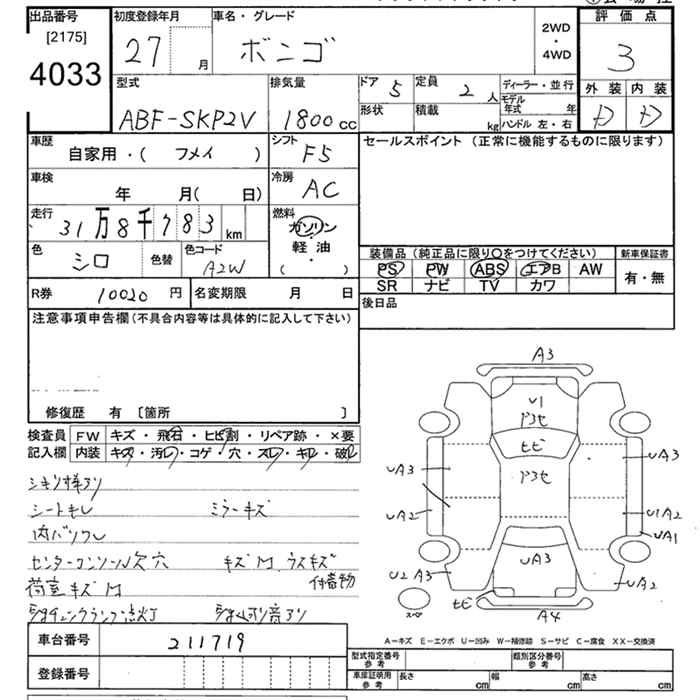 出品番号
[2175]
4033
初度登録年月
27 月
車名・グレード
ボンゴ
2WD
・
4WD
評価点
3
型式
ABF-SKP2V
排気量
1800cc
ドア 5
定員 2人
形状
積載 kg
ディーラー・並行
モデル年式 年
ハンドル 左・右
外装 内装
D D
車歴
自家用・( フメイ )
シフト
F5
車検
年 月( 日)
冷房
AC
走行
31万8千783km
燃料
ガソリン
・
軽油
( )
色
シロ
色替
色コード
A2W
セールスポイント (正常に機能するものに限ります)
装備品 (純正品に限り○をつけてください)
PS PW ABS エアB AW
SR ナビ TV カワ
新車保証書
有・無
R券 10020円
名変期限 月 日
後日品
注意事項申告欄(不具合内容等は具体的に記入して下さい)
修復歴 有 〔箇所 〕
検査員記入欄
FW キズ・飛石・ヒビ割・リペア跡・×要
内装 キズ・汚レ・コゲ・穴・スレ・キレ・破レ
シートモレ
ミラーキズ
内バリワレ
センターコンソール欠 穴
キズM ウスキズ
荷室キズM
付着物
車台番号 211719
登録番号
A3
U1
アヨセ
ヒビ
アヨセ
UA3
UA3
UA2
U1A2
UA1
UA3
U2 A3
UA2
ヒビ
A4
スペ
A-キズ E-エクボ U-凹み W-補修跡 S-サビ C-腐食 XX-交換済
型式指定番号参考
類別区分番号参考
車庫証明用参考 長さ cm 幅 cm 高さ cm